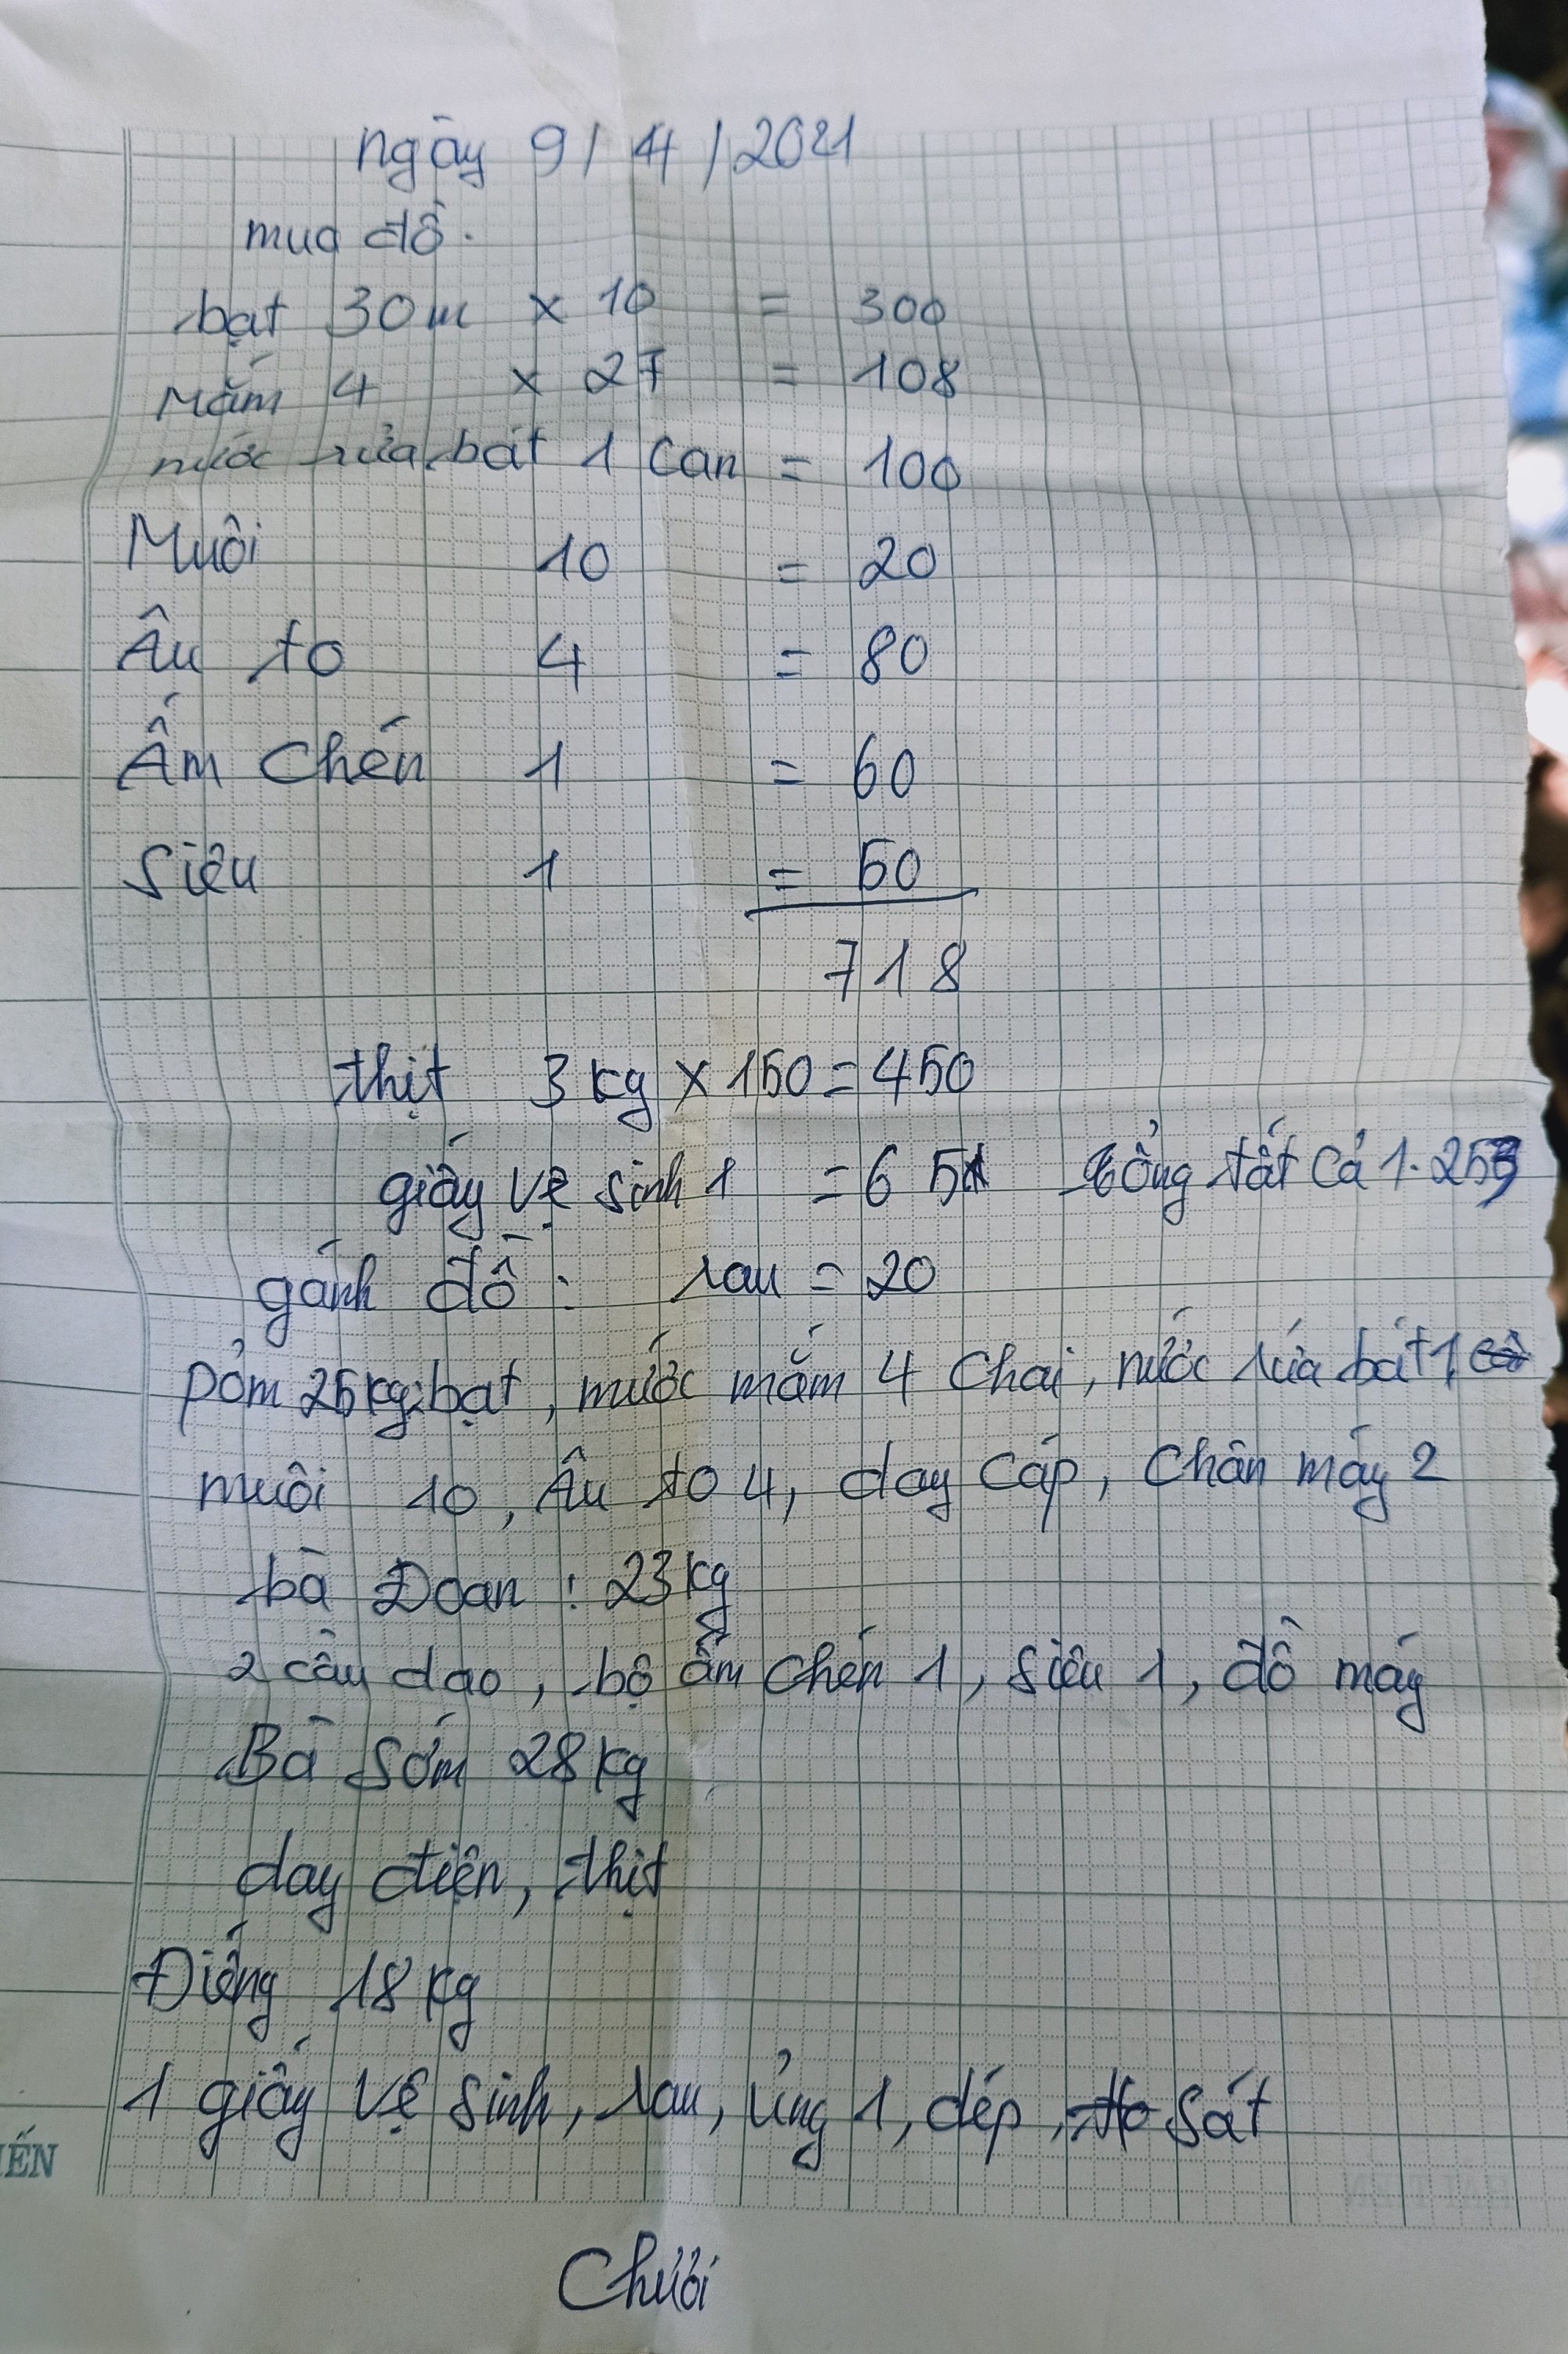 ngày 9/4/2021
mua đồ.
bạt 30m x 10 = 300
Mắm 4 x 27 = 108
nước rửa bát 1 Can = 100
Muôi 10 = 20
Âu to 4 = 80
Ấm Chén 1 = 60
Siêu 1 = 50
718
thịt 3 kg x 150 = 450
giấy vệ sinh 1 = 65 tổng tất cả 1.253
gánh đồ: rau = 20
pỏm 25kg: bạt, nước mắm 4 Chai, nước rửa bát 1,
muôi 10, Âu to 4, day Cáp, Chân máy 2
bà Đoan : 23kg
2 cầu dao, bộ ấm chén 1, siêu 1, đồ máy
Bà Sớm 28kg
day điện, thịt
Điếng 18kg
1 giấy vệ sinh, rau, ủng 1, dép, sát
IẾN
Chưởi